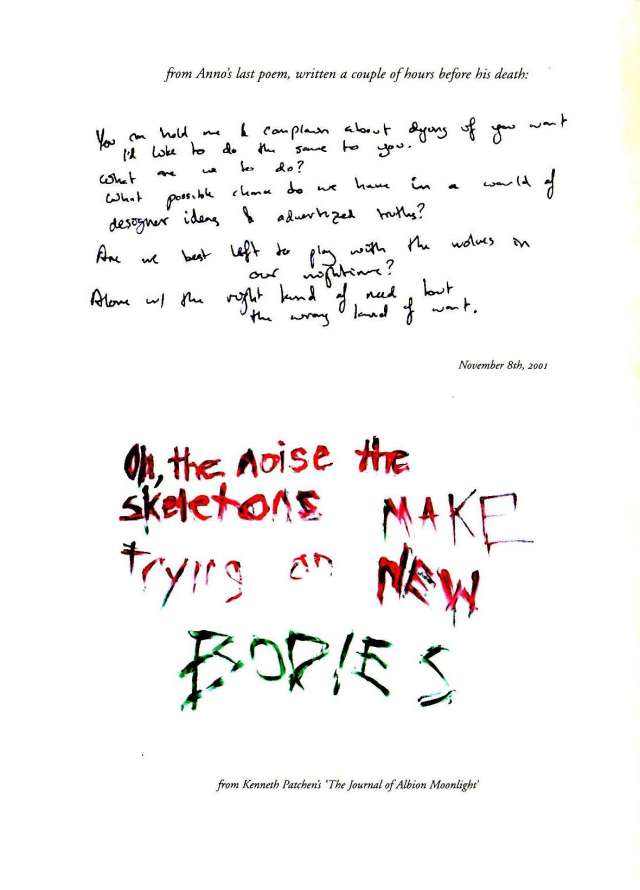 from Anno's last poem, written a couple of hours before his death:
You can hold me & complain about dying if you want
I'd like to do the same to you.
What are we to do?
What possible chance do we have in a world of
designer ideas & advertized truths?
Are we best left to play with the wolves in
our nightime?
Alone w/ the right kind of need but
the wrong kind of want.
November 8th, 2001
Oh, the noise the
skeletons MAKE
trying on NEW
BODIES
from Kenneth Patchen's 'The Journal of Albion Moonlight'